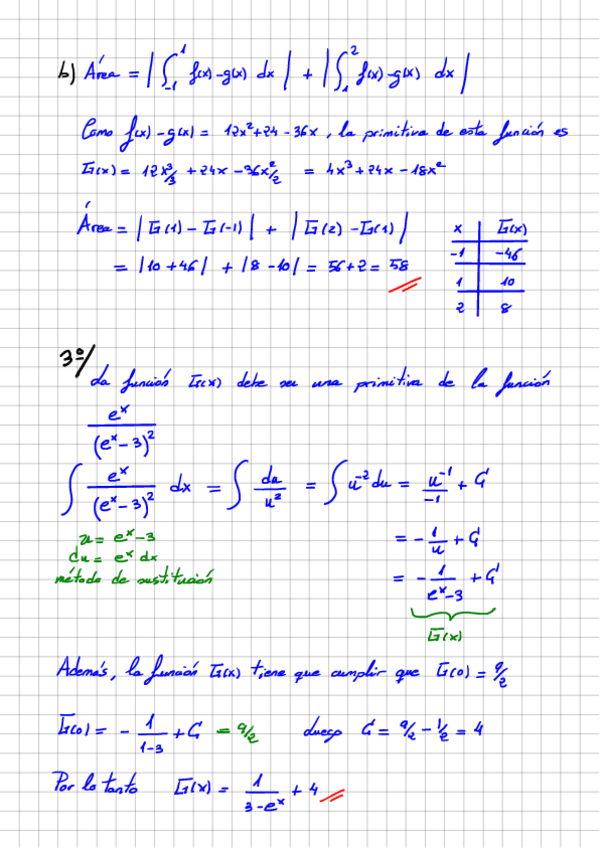 b) Área = | ∫₋₁¹ f(x)-g(x) dx | + | ∫₁² f(x)-g(x) dx |
Como f(x)-g(x) = 12x²+24-36x, la primitiva de esta función es
G(x) = 12x³/3 + 24x - 36x²/2 = 4x³+24x-18x²
Área = | G(1) - G(-1) | + | G(2) - G(1) |
= |10+46| + |8-10| = 56+2 = 58
x | G(x)
-1 | -46
1 | 10
2 | 8
3º/
La función G(x) debe ser una primitiva de la función
eˣ/(eˣ-3)²
∫ eˣ/(eˣ-3)² dx = ∫ du/u² = ∫ u⁻² du = u⁻¹/-1 + C
u = eˣ-3
du = eˣ dx
método de sustitución
= - 1/u + C
= - 1/(eˣ-3) + C
G(x)
Además, la función G(x) tiene que cumplir que G(0) = 9/2
G(0) = - 1/(1-3) + C = 9/2 luego C = 9/2 - 1/2 = 4
Por lo tanto G(x) = 1/(3-eˣ) + 4